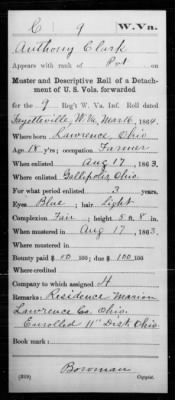 C 9 W. Va.
Anthony Clark
Appears with rank of Pvt on
Muster and Descriptive Roll of a Detach-
ment of U. S. Vols. forwarded
for the 9 Reg't W. Va. Inf. Roll dated
Fayetteville, W. Va, Mar 16, 1864.
Where born Lawrence Ohio
Age 18 y'rs; occupation Farmer
When enlisted Aug 17, 1863.
Where enlisted Gallipolis Ohio.
For what period enlisted 3 years.
Eyes Blue; hair Light
Complexion Fair; height 5 ft. 8 in.
When mustered in Aug 17, 1863.
Where mustered in
Bounty paid $ 00 100; due $ 100 100
Where credited
Company to which assigned H
Remarks: Residence Marion
Lawrence Co. Ohio.
Enrolled 11" Dist. Ohio.
Book mark:
Bowman
(339) Copyist.